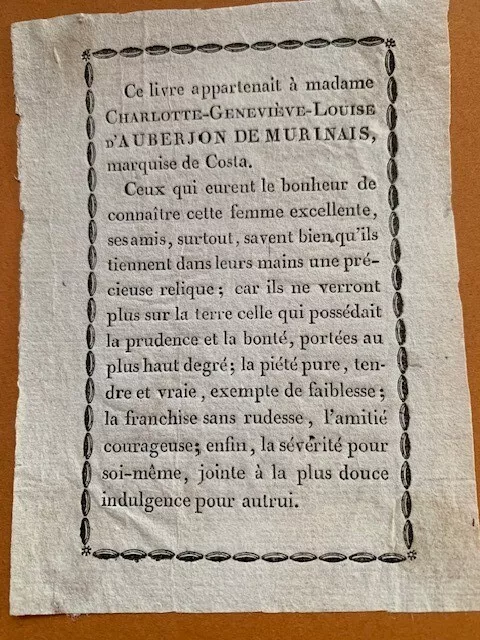 Ce livre appartenait à madame
CHARLOTTE-GENEVIÈVE-LOUISE
D'AUBERJON DE MURINAIS,
marquise de Costa.
Ceux qui eurent le bonheur de
connaître cette femme excellente,
ses amis, surtout, savent bien qu'ils
tiennent dans leurs mains une pré-
cieuse relique; car ils ne verront
plus sur la terre celle qui possédait
la prudence et la bonté, portées au
plus haut degré; la piété pure, ten-
dre et vraie, exempte de faiblesse;
la franchise sans rudesse, l'amitié
courageuse; enfin, la sévérité pour
soi-même, jointe à la plus douce
indulgence pour autrui.